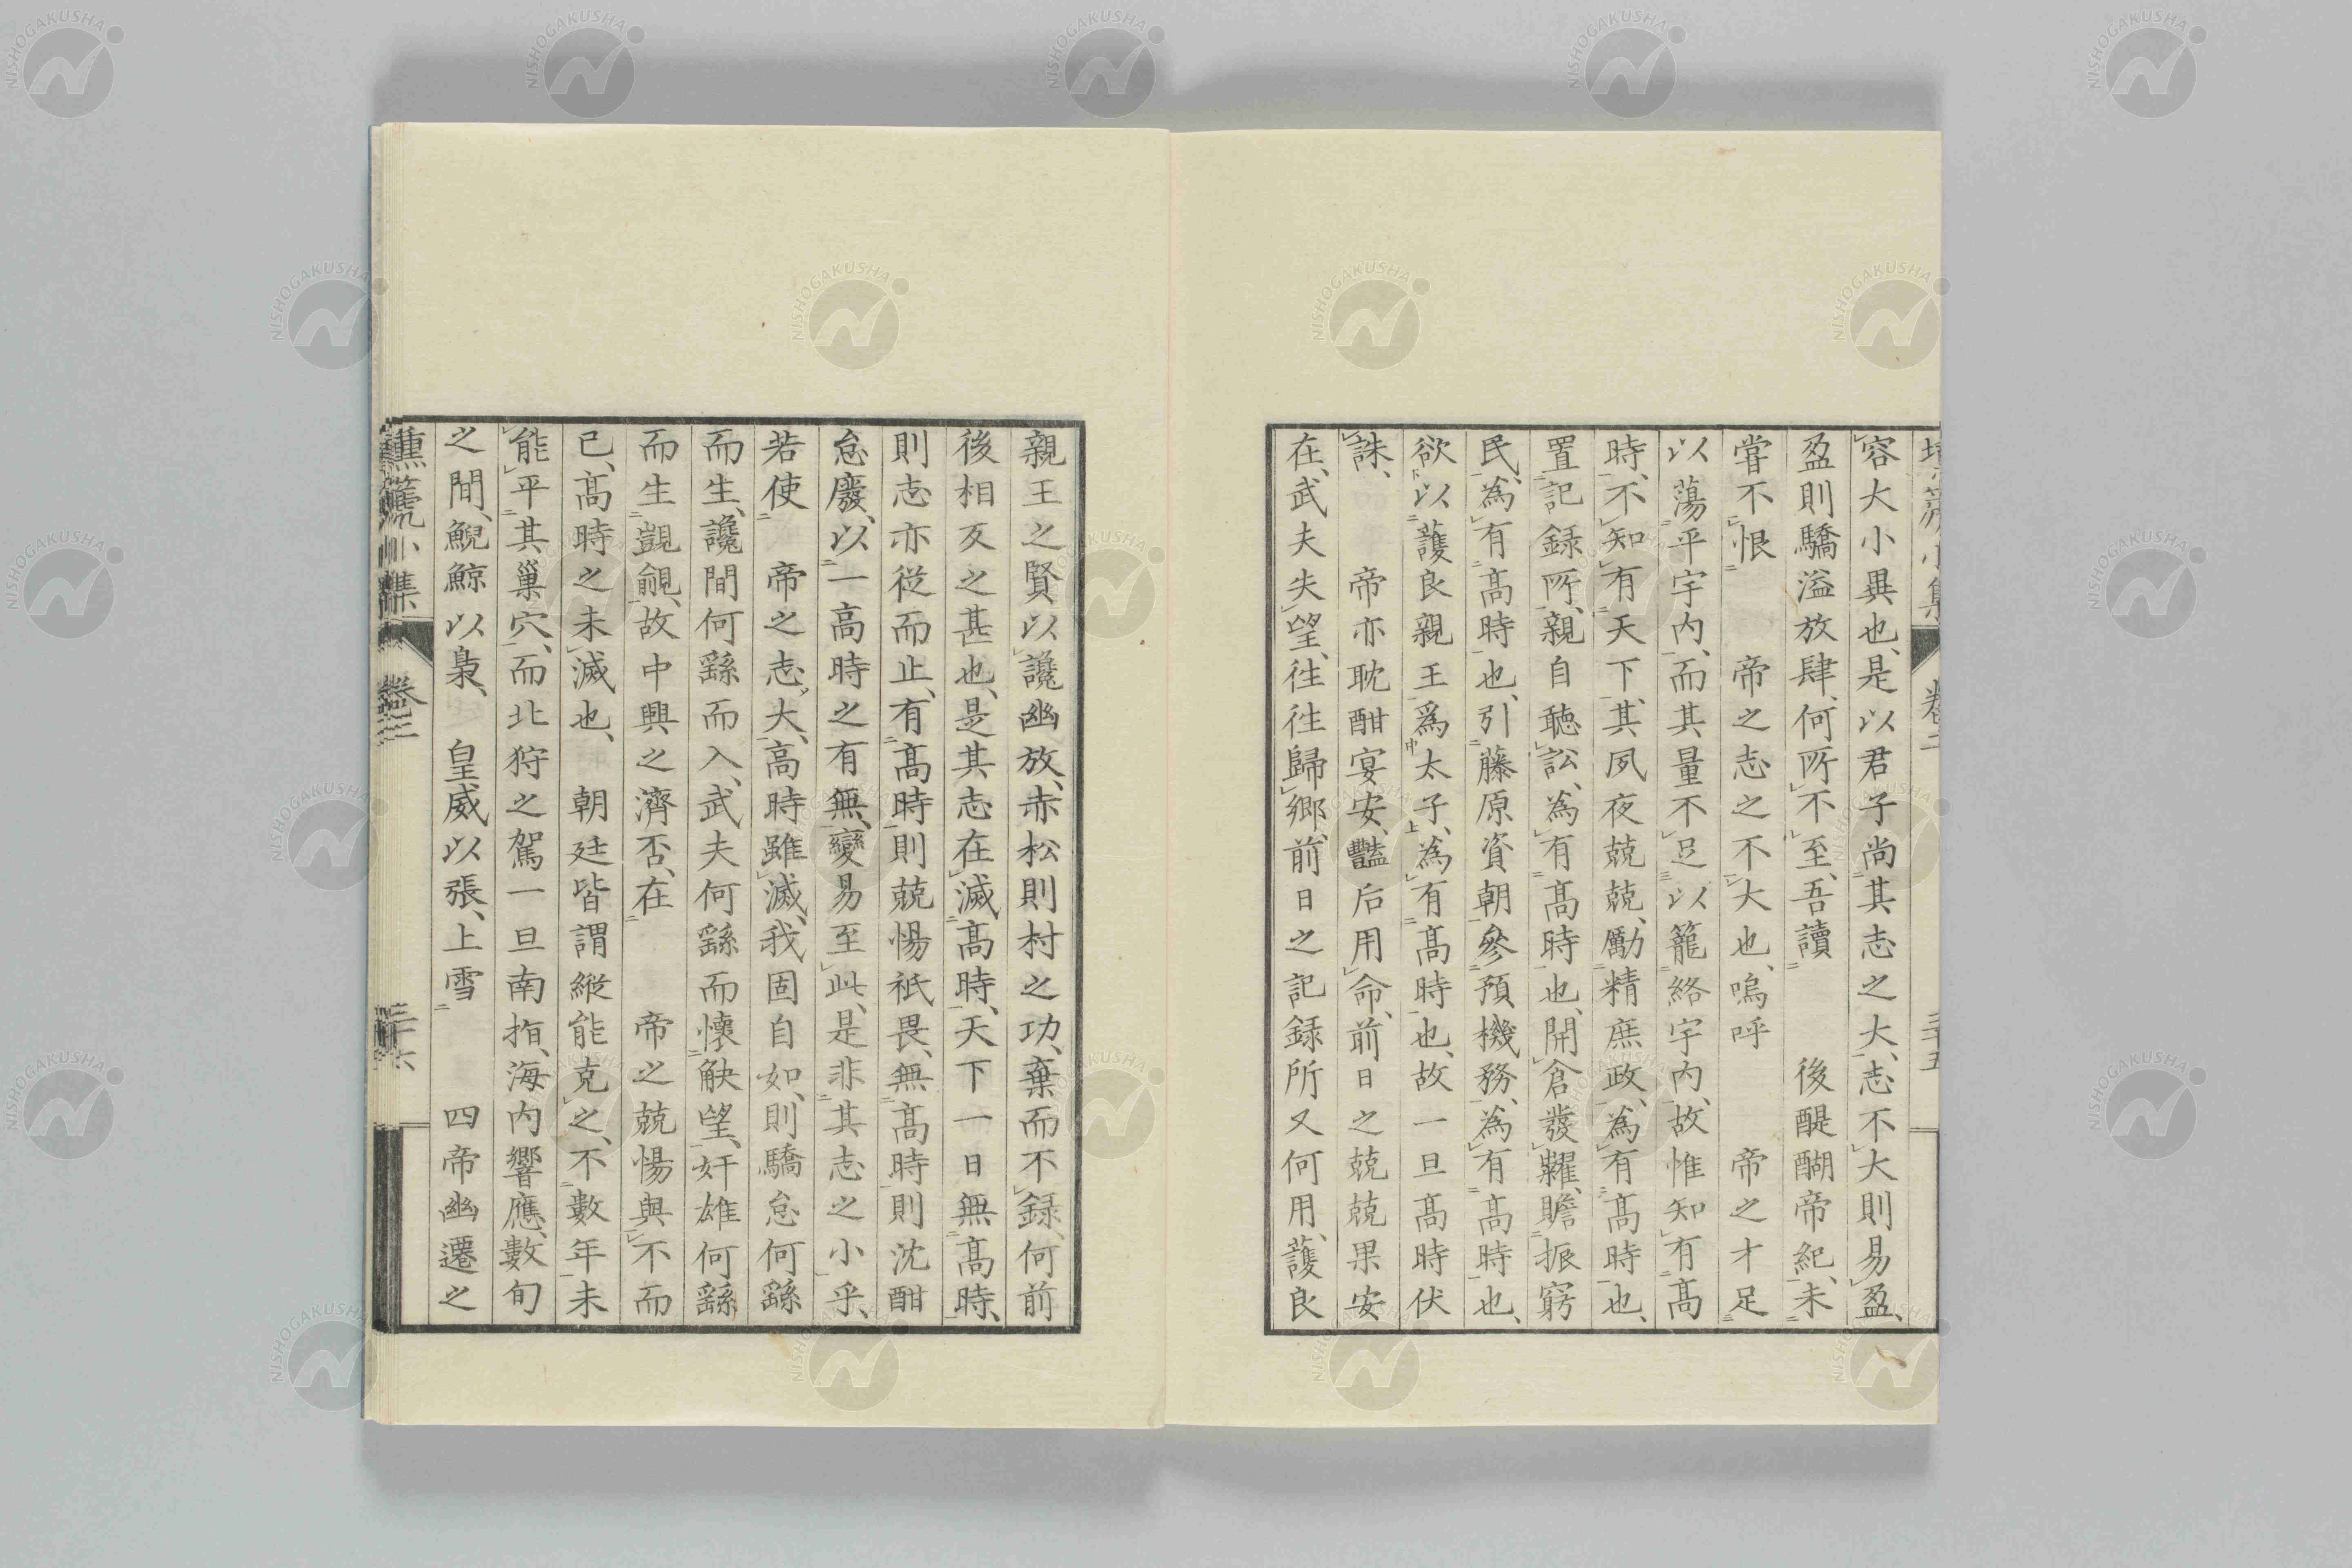 容大小異也、是以君子尚其志之大、志不大則易盈、
盈則驕溢放肆、何所不至、吾讀　後醍醐帝紀、未
嘗不恨　帝之志之不大也、嗚呼　帝之才足
以蕩平宇內、而其量不足以籠絡宇內、故惟知有高
時、不知有天下、其夙夜兢兢、勵精庶政、為有高時也、
置記録所、親自聽訟、為有高時也、開倉發糶、贍振窮
民、為有高時也、引藤原資朝、參預機務、為有高時也、
欲以護良親王爲太子、為有高時也、故一旦高時伏
誅、　帝亦耽酣宴安、豔后用命、前日之兢兢果安
在、武夫失望、往往歸鄉、前日之記録所又何用、護良
親王之賢以讒幽放、赤松則村之功、棄而不録、何前
後相反之甚也、是其志在滅高時、天下一日無高時、
則志亦從而止、有高時則兢惕祇畏、無高時則沈酣
怠廢、以一高時之有無、變易至此、是非其志之小乎、
若使　帝之志大、高時雖滅、我固自如、則驕怠何繇
而生、讒間何繇而入、武夫何繇而懷觖望、奸雄何繇
而生覬覦、故中興之濟否、在　帝之兢惕與不而
已、高時之未滅也、　朝廷皆謂縱能克之、不數年未
能平其巢穴、而北狩之駕一旦南指、海內響應、數旬
之間、鯢鯨以梟、　皇威以張、上雪　四帝幽遷之
NISHOGAKUSHA